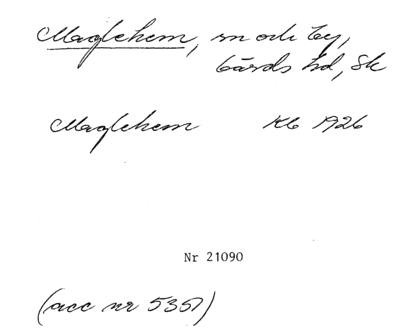 Maglehem, sn och by,
Gärds hd, Sk
Maglehem Kb 1926
Nr 21090
(acc nr 5357)